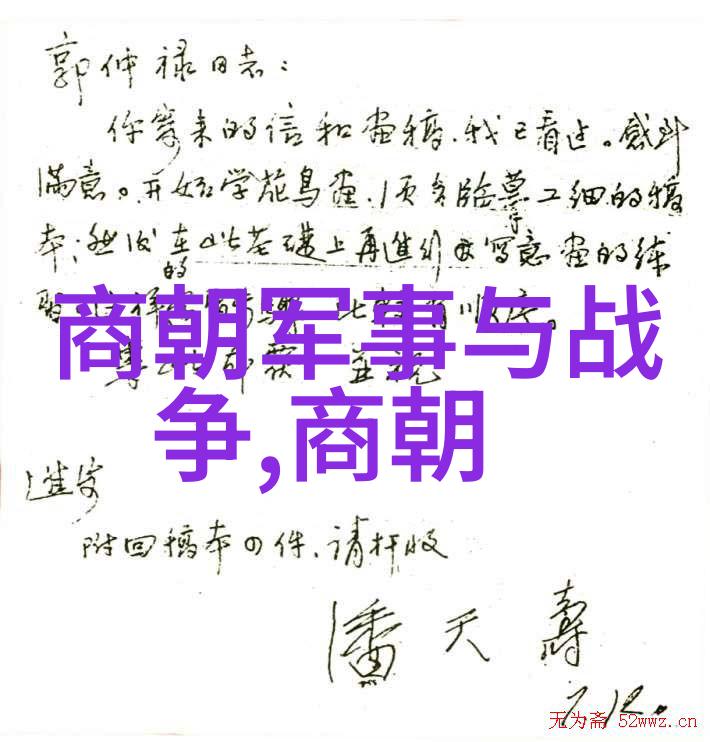 郭仲禄同志：
你寄来的信和画稿，我已看过。感到
满意。开始学花鸟画，须多临摹工细的稿
本；然后在此基础上再进行写意画的练
习。的
商朝军事与战
争,商朝
进步
附回稿本四件、请检收
潘天寿
7.12.
无为斋 52wwz.cn